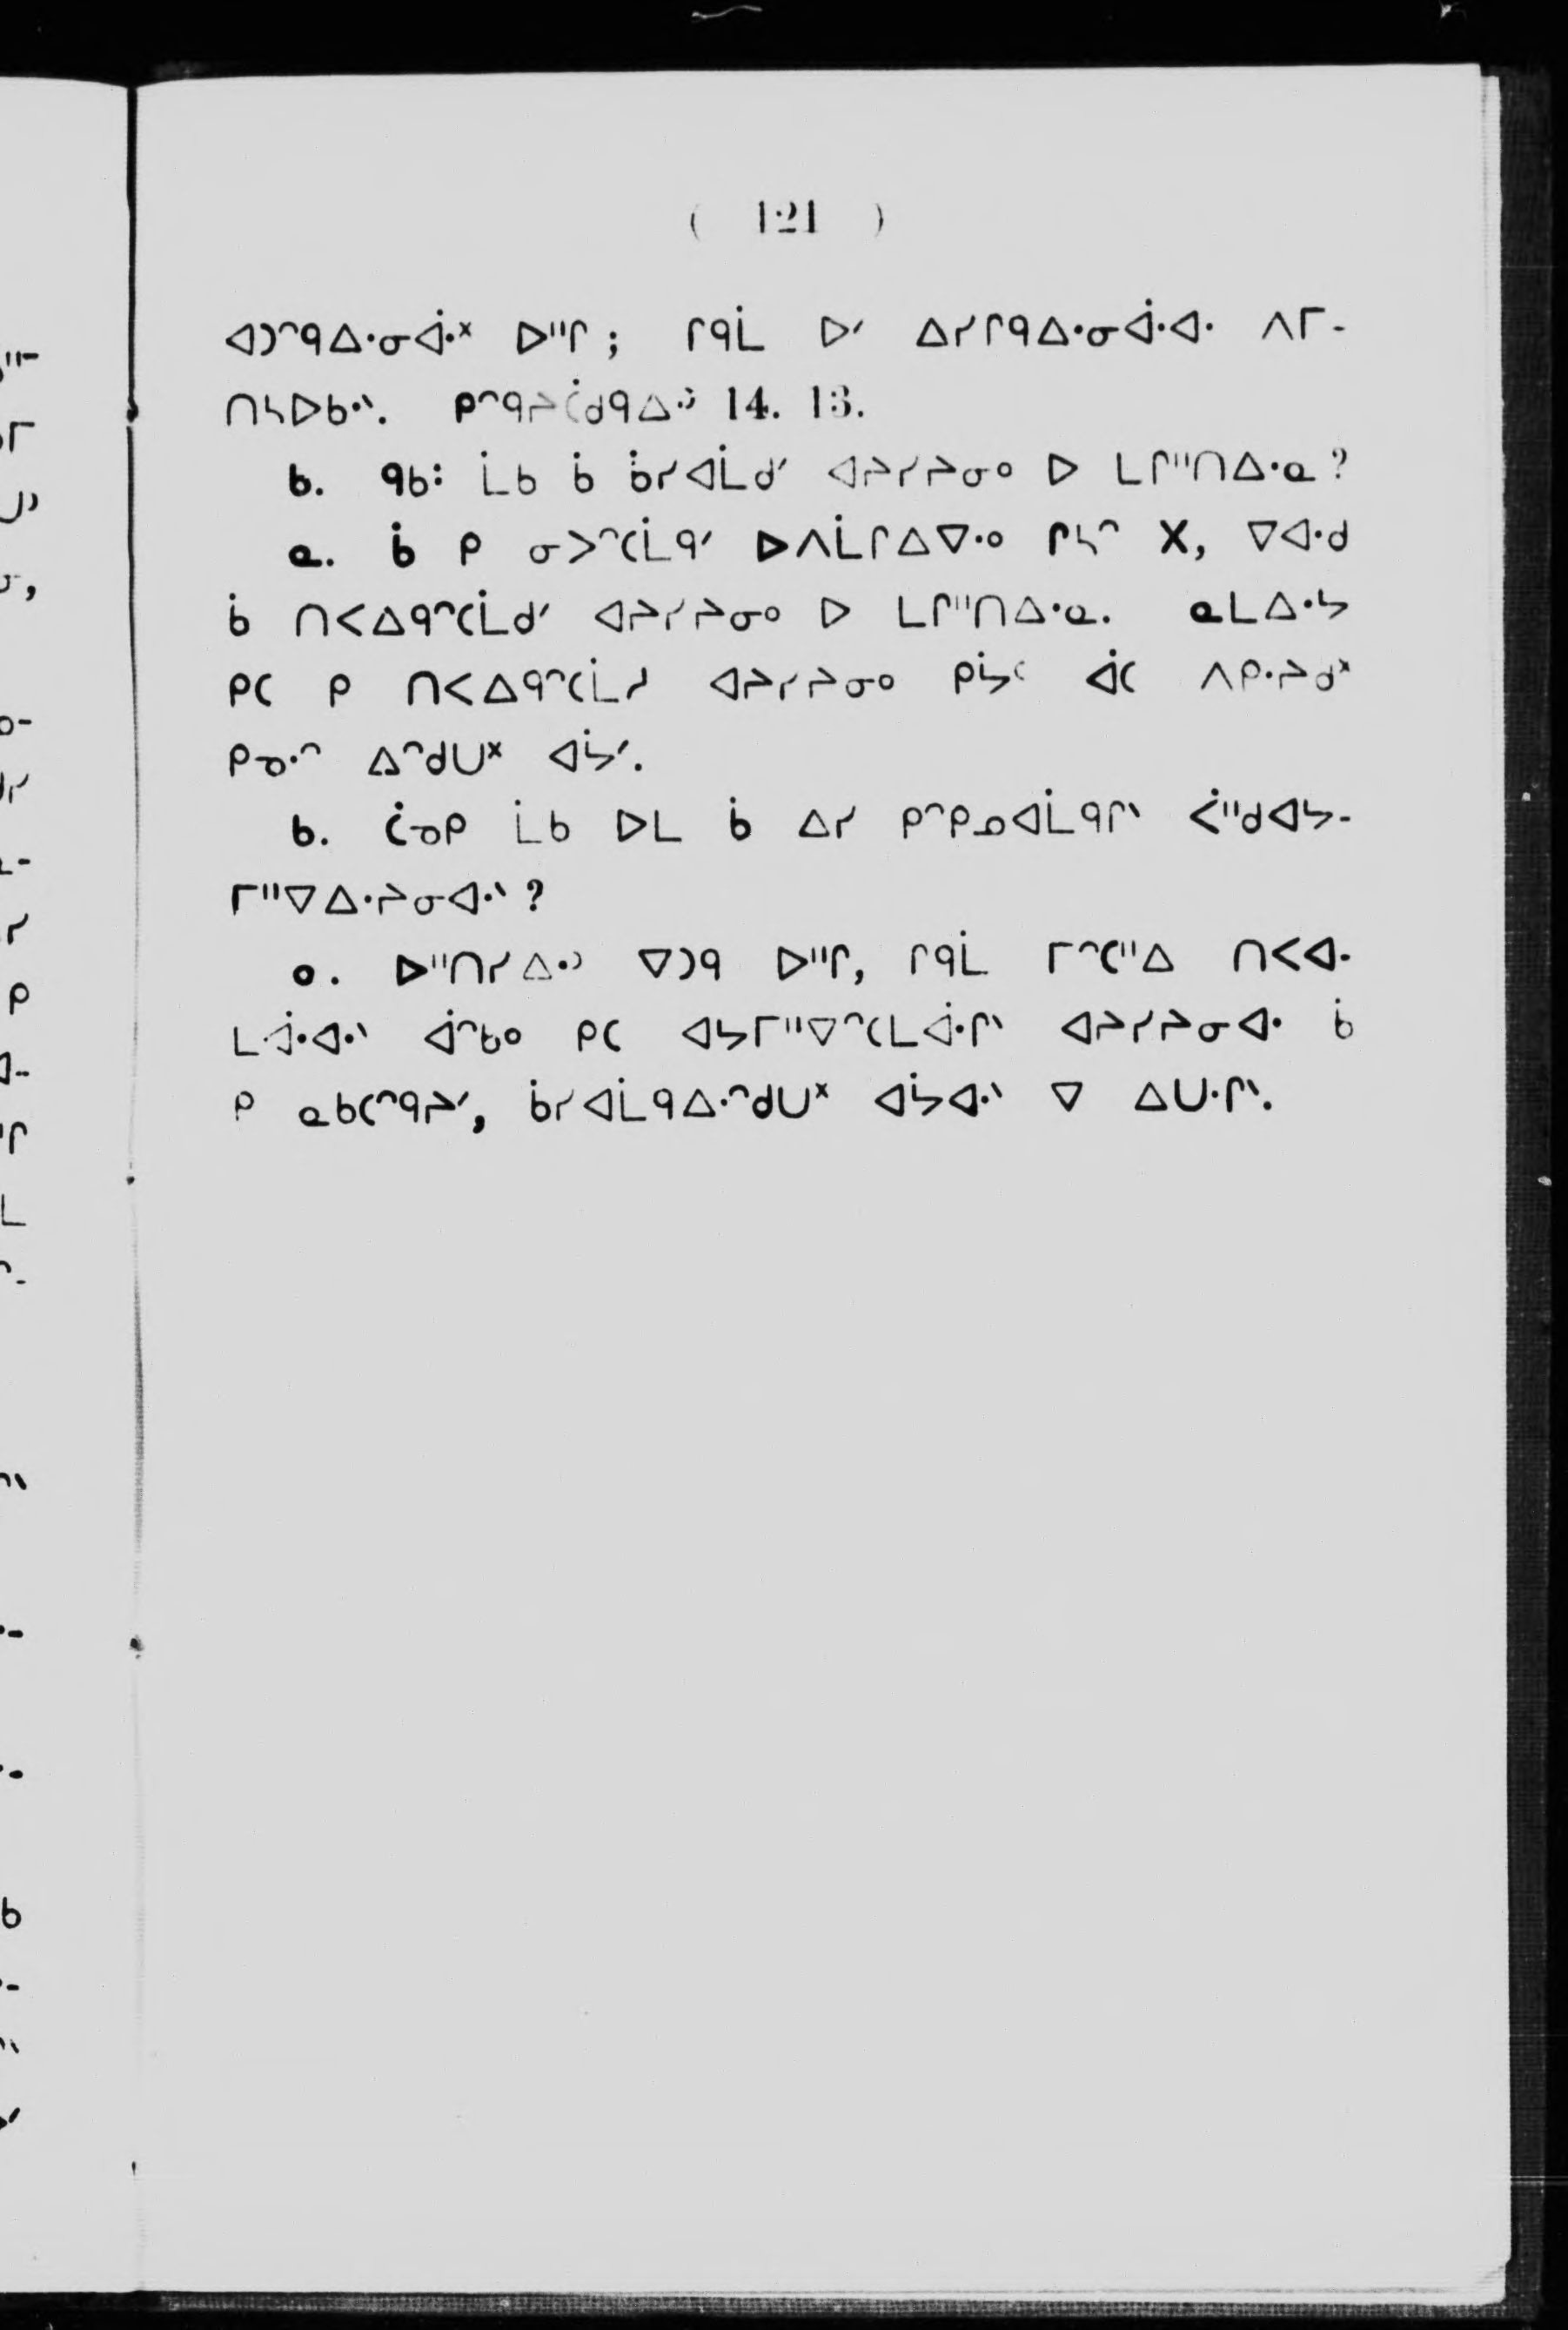 ( 121 )
ᐊᑐᐢᑫᐃᐧᓂᐋᐧᕽ ᐅᐦᒋ; ᒋᑫᒫ ᐅᐟ ᐃᓯᒋᑫᐃᐧᓂᐋᐧᐊᐧ ᐱᒥ-
ᑎᓴᐅᑲᐧᐠ. ᑭᐢᑫᔨᑖᑯᑫᐃᐧᐣ 14. 13.
ᑲ. ᑫᑲᐧ: ᒫᑲ ᑳ ᑳᓯᐊᒫᑯᐟ ᐊᔨᓯᔨᓂᐤ ᐅ ᒪᒋᐦᑎᐃᐧᓇ?
ᓇ. ᑳ ᑭ ᓂᐳᐢᑕᒫᑫᐟ ᐅᐱᒫᒋᐃᐁᐧᐤ ᒋᓴᐢ X, ᐁᐊᐧᑯ
ᑳ ᑎᐸᐃᑫᐢᑕᒫᑯᐟ ᐊᔨᓯᔨᓂᐤ ᐅ ᒪᒋᐦᑎᐃᐧᓇ. ᓇᒪᐃᐧᔭ
ᑭᑕ ᑭ ᑎᐸᐃᑫᐢᑕᒫᓱ ᐊᔨᓯᔨᓂᐤ ᑭᔮᑦ ᐋᑕ ᐱᑭᐧᔨᑯᕽ
ᑭᓀᐧᐢ ᐃᐢᑯᑌᕽ ᐊᔮᐟ.
ᑲ. ᑖᓀᑭ ᒫᑲ ᐅᒪ ᑳ ᐃᓯ ᑭᐢᑭᓄᐊᒫᑫᒋᐠ ᐹᐦᑯᐊᔭ-
ᒥᐦᐁᐃᐧᔨᓂᐊᐧᐠ?
ᓇ. ᐅᐦᑎᓯᐃᐧᐣ ᐁᑐᑫ ᐅᐦᒋ, ᒋᑫᒫ ᒥᐢᑕᐦᐃ ᑎᐸᐊᐧ
ᒪᐋᐧᐊᐧᐠ ᐋᐢᑲᐤ ᑭᑕ ᐊᔭᒥᐦᐁᐢᑕᒪᐋᐧᒋᐠ ᐊᔨᓯᔨᓂᐊᐧ ᑳ
ᑭ ᓇᑲᑕᐢᑫᔨᐟ, ᑳᓯᐊᒫᑫᐃᐧᐢᑯᑌᕽ ᐊᔮᐊᐧᐠ ᐁ ᐃᑌᐧᒋᐠ.